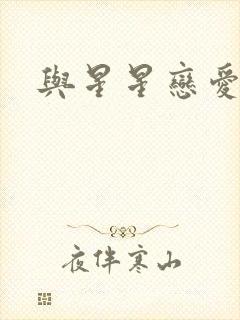 與星星戀愛
夜伴寒山